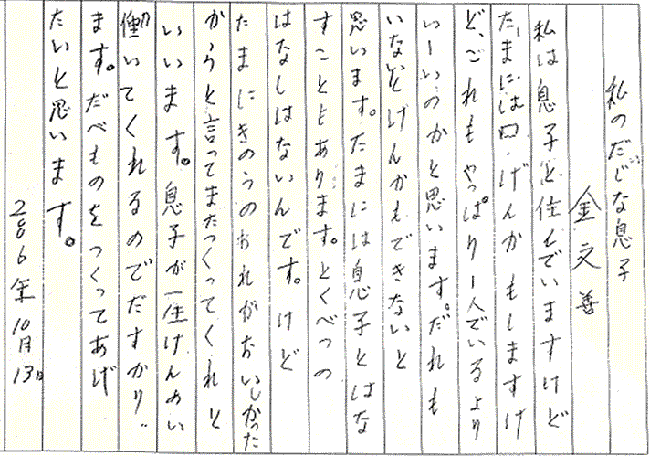 私のだじな息子
金文善
私は息子と住んでいますけど
たまには口げんかもしますけ
ど、これもやっぱり一人でいるより
いーいのかと思います。だれも
いないとけんかもできないと
思います。たまには息子とはな
すこともあります。とくべつの
はなしはないんです。けど
たまにきのうのあれがおいしかった
からと言ってまたつくってくれと
いいます。息子が一生けんめい
働いてくれるのでだすかり
ます。だべものをつくってあげ
たいと思います。
2006年10月13日